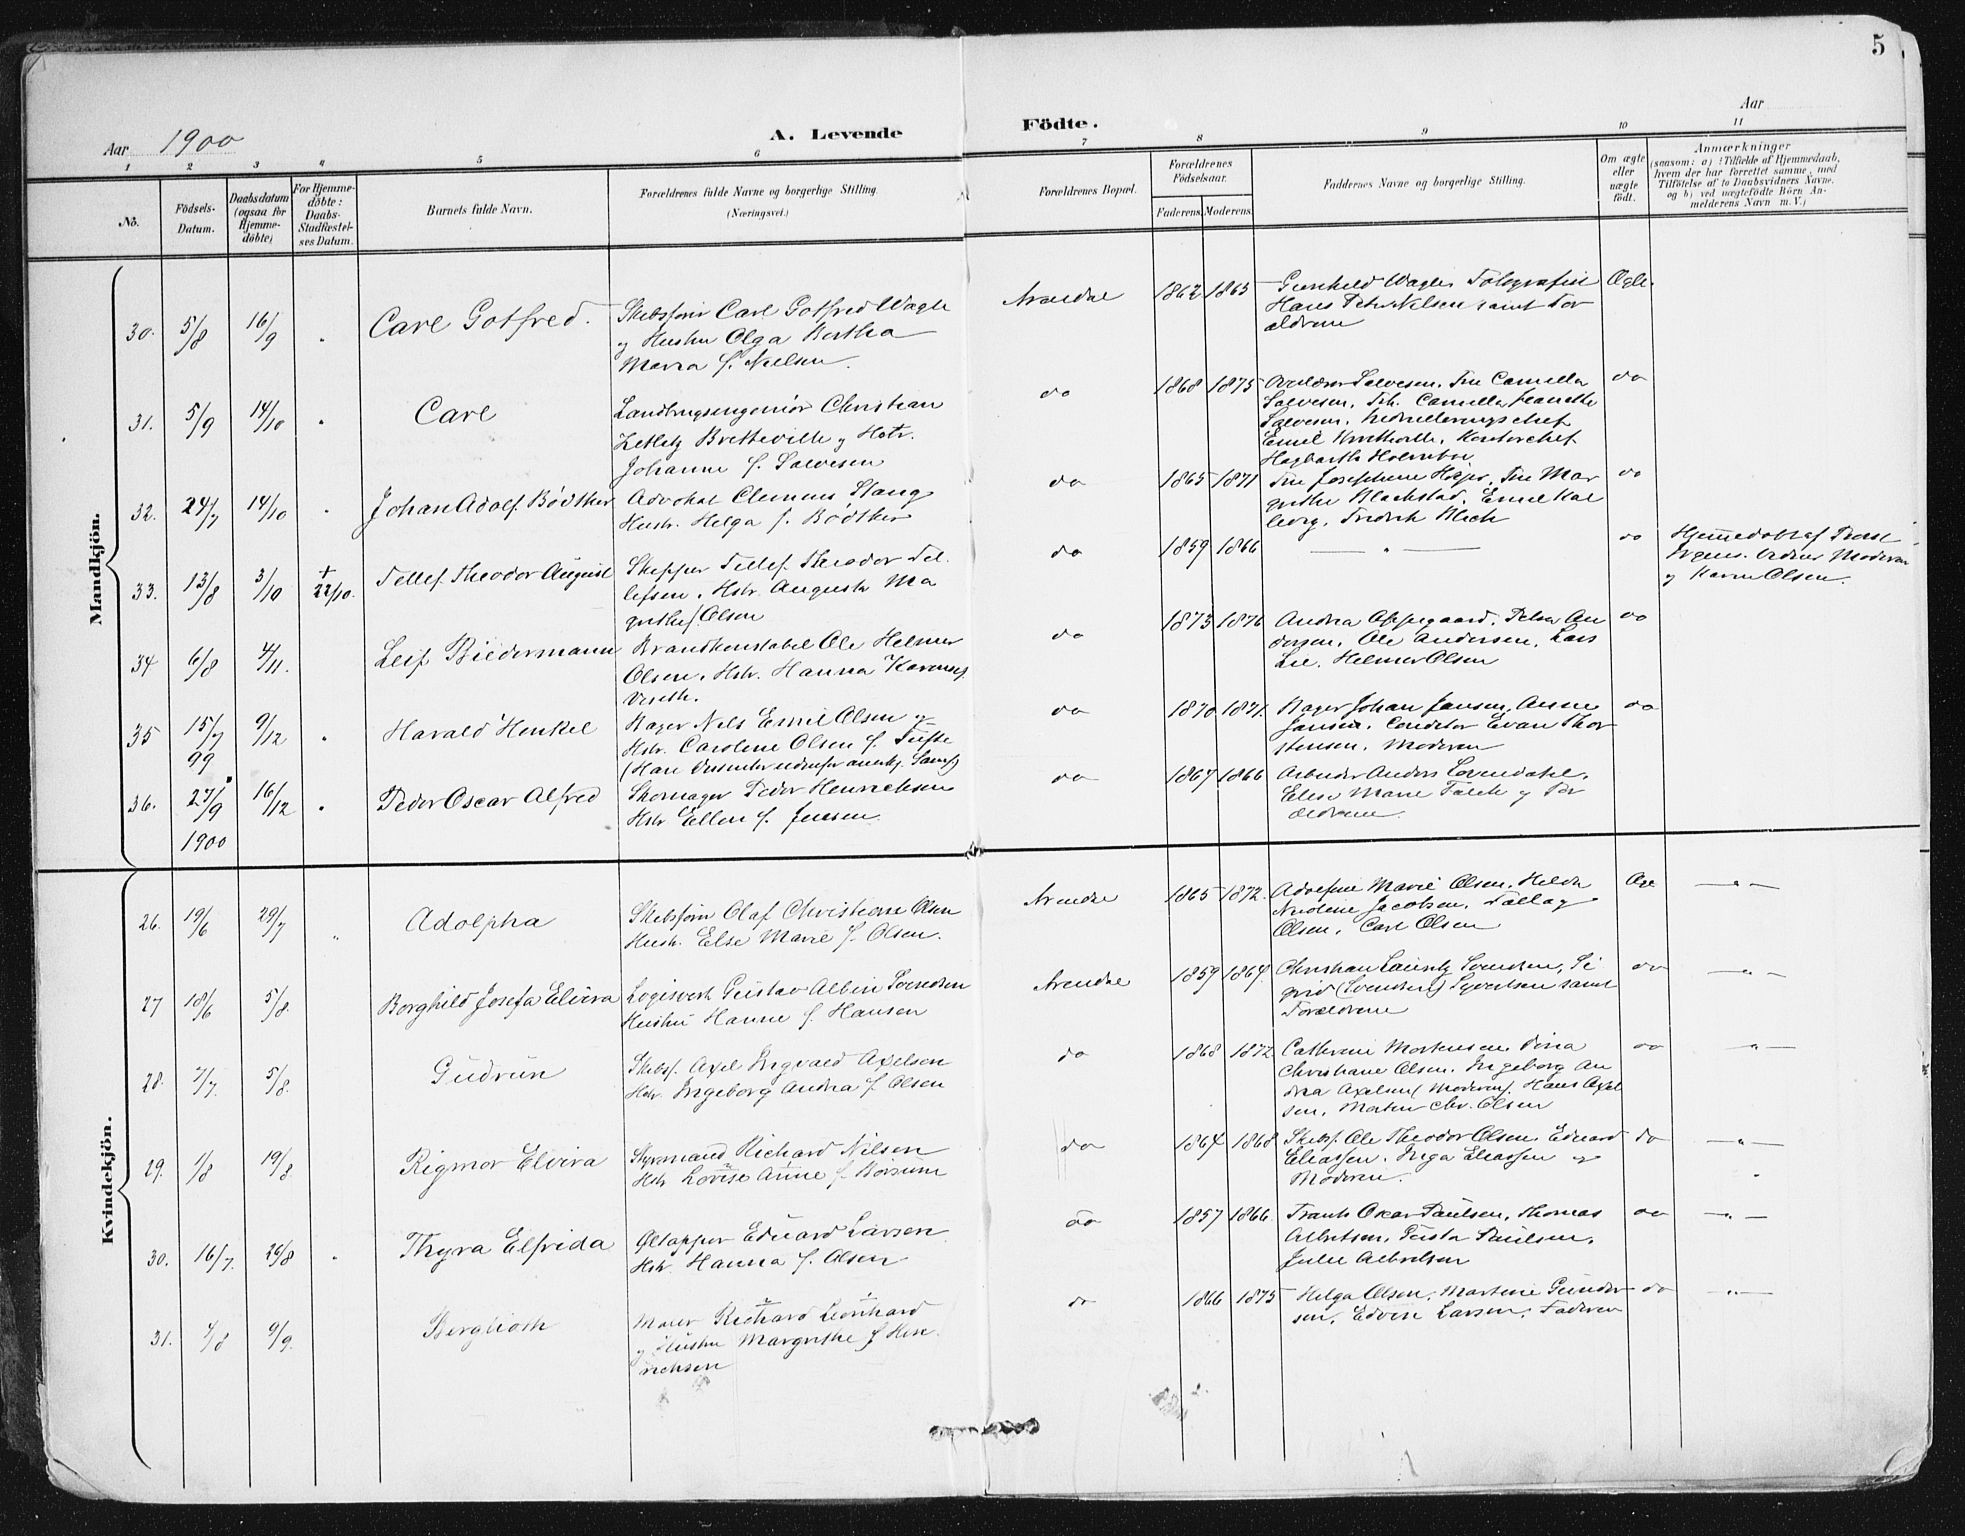 5
Aar 1900
A. Levende Födte.
Aar
1 2 3 4 5 6 7 8 9 10 11
No.
Födsels-Datum.
Daabsdatum (ogsaa for Hjemmedöbte)
For Hjemmedöbte: Daabs-Stadfæstelses Datum.
Barnets fulde Navn.
Forældrenes fulde Navne og borgerlige Stilling. (Næringsvei.)
Forældrenes Bopæl.
Forældrenes Födselsaar.
Faderens. Moderens.
Faddernes Navne og borgerlige Stilling.
Om ægte eller uægte födt.
Anmærkninger
(saasom: a) i Tilfælde af Hjemmedaab,
hvem der har forrettet samme, med
Tilföielse af to Daabsvidners Navne.
og b) ved uægtefödte Börn An-
melderens Navn m. V.)
Mandkjön.
30. 5/8 16/9 " Carl Gotfred.
Skibsfører Carl Gotfred Wagle
og Hustru Olga Bertha
Maria f. Nielsen.
Arendal 1862 1865
Gunhild Wagle, Fotografist
Hans Peter Nielsen samt For
ældrene
Ægte.
31. 5/9 14/10 " Carl
Landbrugsingeniør Christian
Zetlitz Bretteville og Hstr.
Johanne f. Salvesen
do 1868 1875
Salvesen, Fru Camilla
Salvesen, Frk. Camilla Jeanette
Salvesen, Nedrulleringschef
Emil Bretteville, Kontorchef
Hagbarth Holmboe
do
32. 24/7 14/10 " Johan Adolf Bödtker
Advokat Clemens Stang
Hustr. Helga f. Bödtker
do 1865 1871
Fru Josephine Höyer, Fru Mar
grethe Blackstad, Emil Kal
berg, Fredrik Blich
do
33. 13/8 3/10 + 22/10. Tellef Theodor August
Skipper Tellef Theodor Tel
lefsen, Hstr. Augusta Ma
grethe f. Olsen
do 1859 1866
— " —
do
Hjemmedöbt af Provst
Vidner Moderen
og Karen Olsen.
34 6/8 4/11. Leif Biedermann
Brandkonstabel Ole Helmer
Olsen, Hstr. Hanna f.
do 1873 1876
Andrea Oppegaard, Petra An
dersen, Ole Andersen, Lars
Lie, Helmer Olsen
do
35 15/7 99 9/12 " Harald Henkel
Bager Nils Emil Olsen og
Hstr. Caroline Olsen f. Tufte
do 1870 1871.
Bager Johan Jansen, Anne
Jansen, Conditor Evan Thor
stensen, Moderen
do
36. 27/9 1900 16/12 " Peder Oscar Alfred
Skomager Peder Henrichsen
Hstr Ellen f. Jensen.
do 1867 1866
Arbeider Anders Lovendahl,
Elise Marie Falch og For
ældrene.
Kvindekjön.
26. 19/6 29/7 " Adolpha
Skibsförer Olaf Christian Olsen
Hustr. Else Marie f. Olsen.
Arendal 1865 1872.
Adolfine Marie Olsen, Helda
Nicoline Jacobsen, Tallag
Olsen, Carl Olsen
Æge — " —
27 18/6 5/8. Borghild Josefa Elvira
Logisvert Gustav Albin
Hustru Hanne f. Hansen
Arendal 1859 1864.
Christian Lauritz Svendsen, Si
grid (Svendsen) Syvertsen samt
Forældrene
do — " —
28. 7/7. 5/8. Gudrun
Skibsf. Axel Ingvald Axelsen
Hstr. Ingeborg Andrea f. Olsen
do 1868 1872
Cathrine Mortensen, Dina
Christiane Olsen, Ingeborg An
drea Axelsen (Moderen), Hans Axel
sen, Morten Chr. Olsen
do — " —
29. 1/8 19/8. Rigmor Elvira
Styrmand Richard Nilsen
Hstr Lovise Anne f. Borsum
do 1864 1868
Skibsf. Ole Theodor Olsen, Eduard
Eliassen, Inga Eliassen og
Moderen.
do — " —
30. 16/7. 26/8 " Thyra Elfrida
Øltapper Eduard Larsen
Hstr. Hanna f. Olsen
do 1857 1866.
Frants Oskar Paulsen, Thomas
Albertsen, Gusta Paulsen,
Julie Albertsen
do — " —
31. 7/8 9/9. Bergliot
Murer Richard Leonhard
og Hustru Margrethe f Hen
richsen
do 1866 1875
Helga Olsen, Martine Gunder
sen, Edvin Larsen, Faderen
do — " —